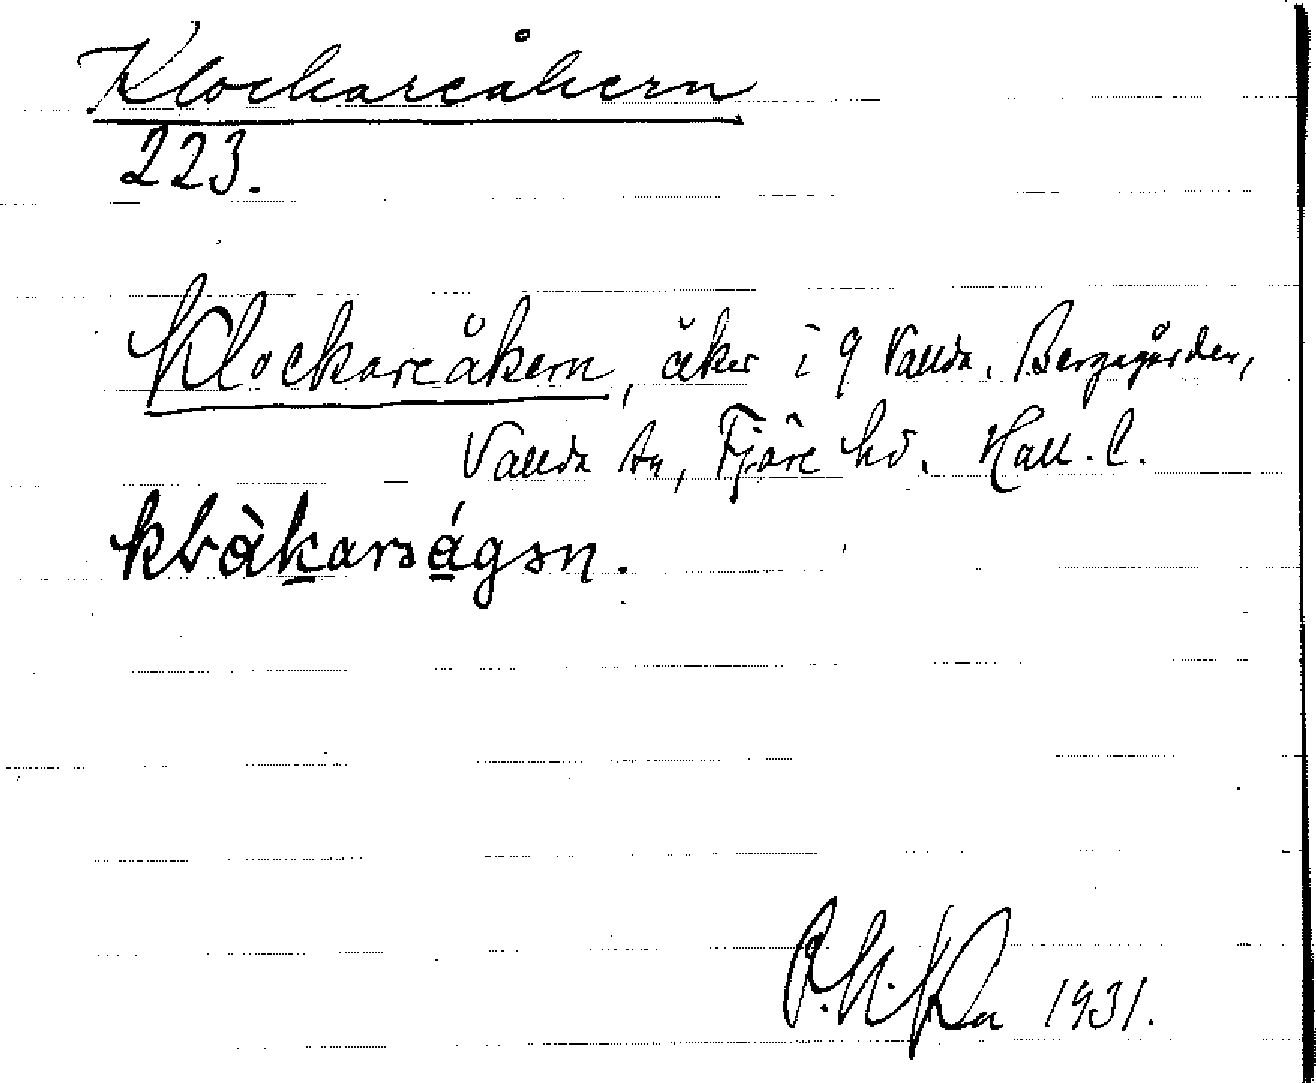 Klockareåkern
223.
Klockareåkern, åker i 9 Vallda, Bergsgården,
Vallda sn, Fjäre hd. Hall. l.
1931.